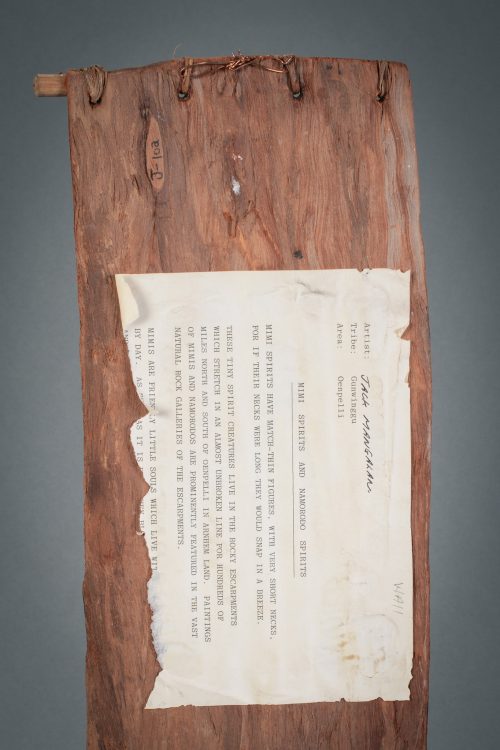 J-10a
Artist: JACK MANGALAM.
Tribe: Gunwinggu
Area: Oenpelli
MIMI SPIRITS AND NAMORODO SPIRITS
MIMI SPIRITS HAVE MATCH-THIN FIGURES. WITH VERY SHORT NECKS.
FOR IF THEIR NECKS WERE LONG THEY WOULD SNAP IN A BREEZE.
THESE TINY SPIRIT CREATURES LIVE IN THE ROCKY ESCARPMENTS
WHICH STRETCH IN AN ALMOST UNBROKEN LINE FOR HUNDREDS OF
MILES NORTH AND SOUTH OF OENPELLI IN ARNHEM LAND. PAINTINGS
OF MIMIS AND NAMORODOS ARE PROMINENTLY FEATURED IN THE VAST
NATURAL ROCK GALLERIES OF THE ESCARPMENTS.
MIMIS ARE FRIENDLY LITTLE SOULS WHICH LIVE
BY DAY. AS AS IT IS